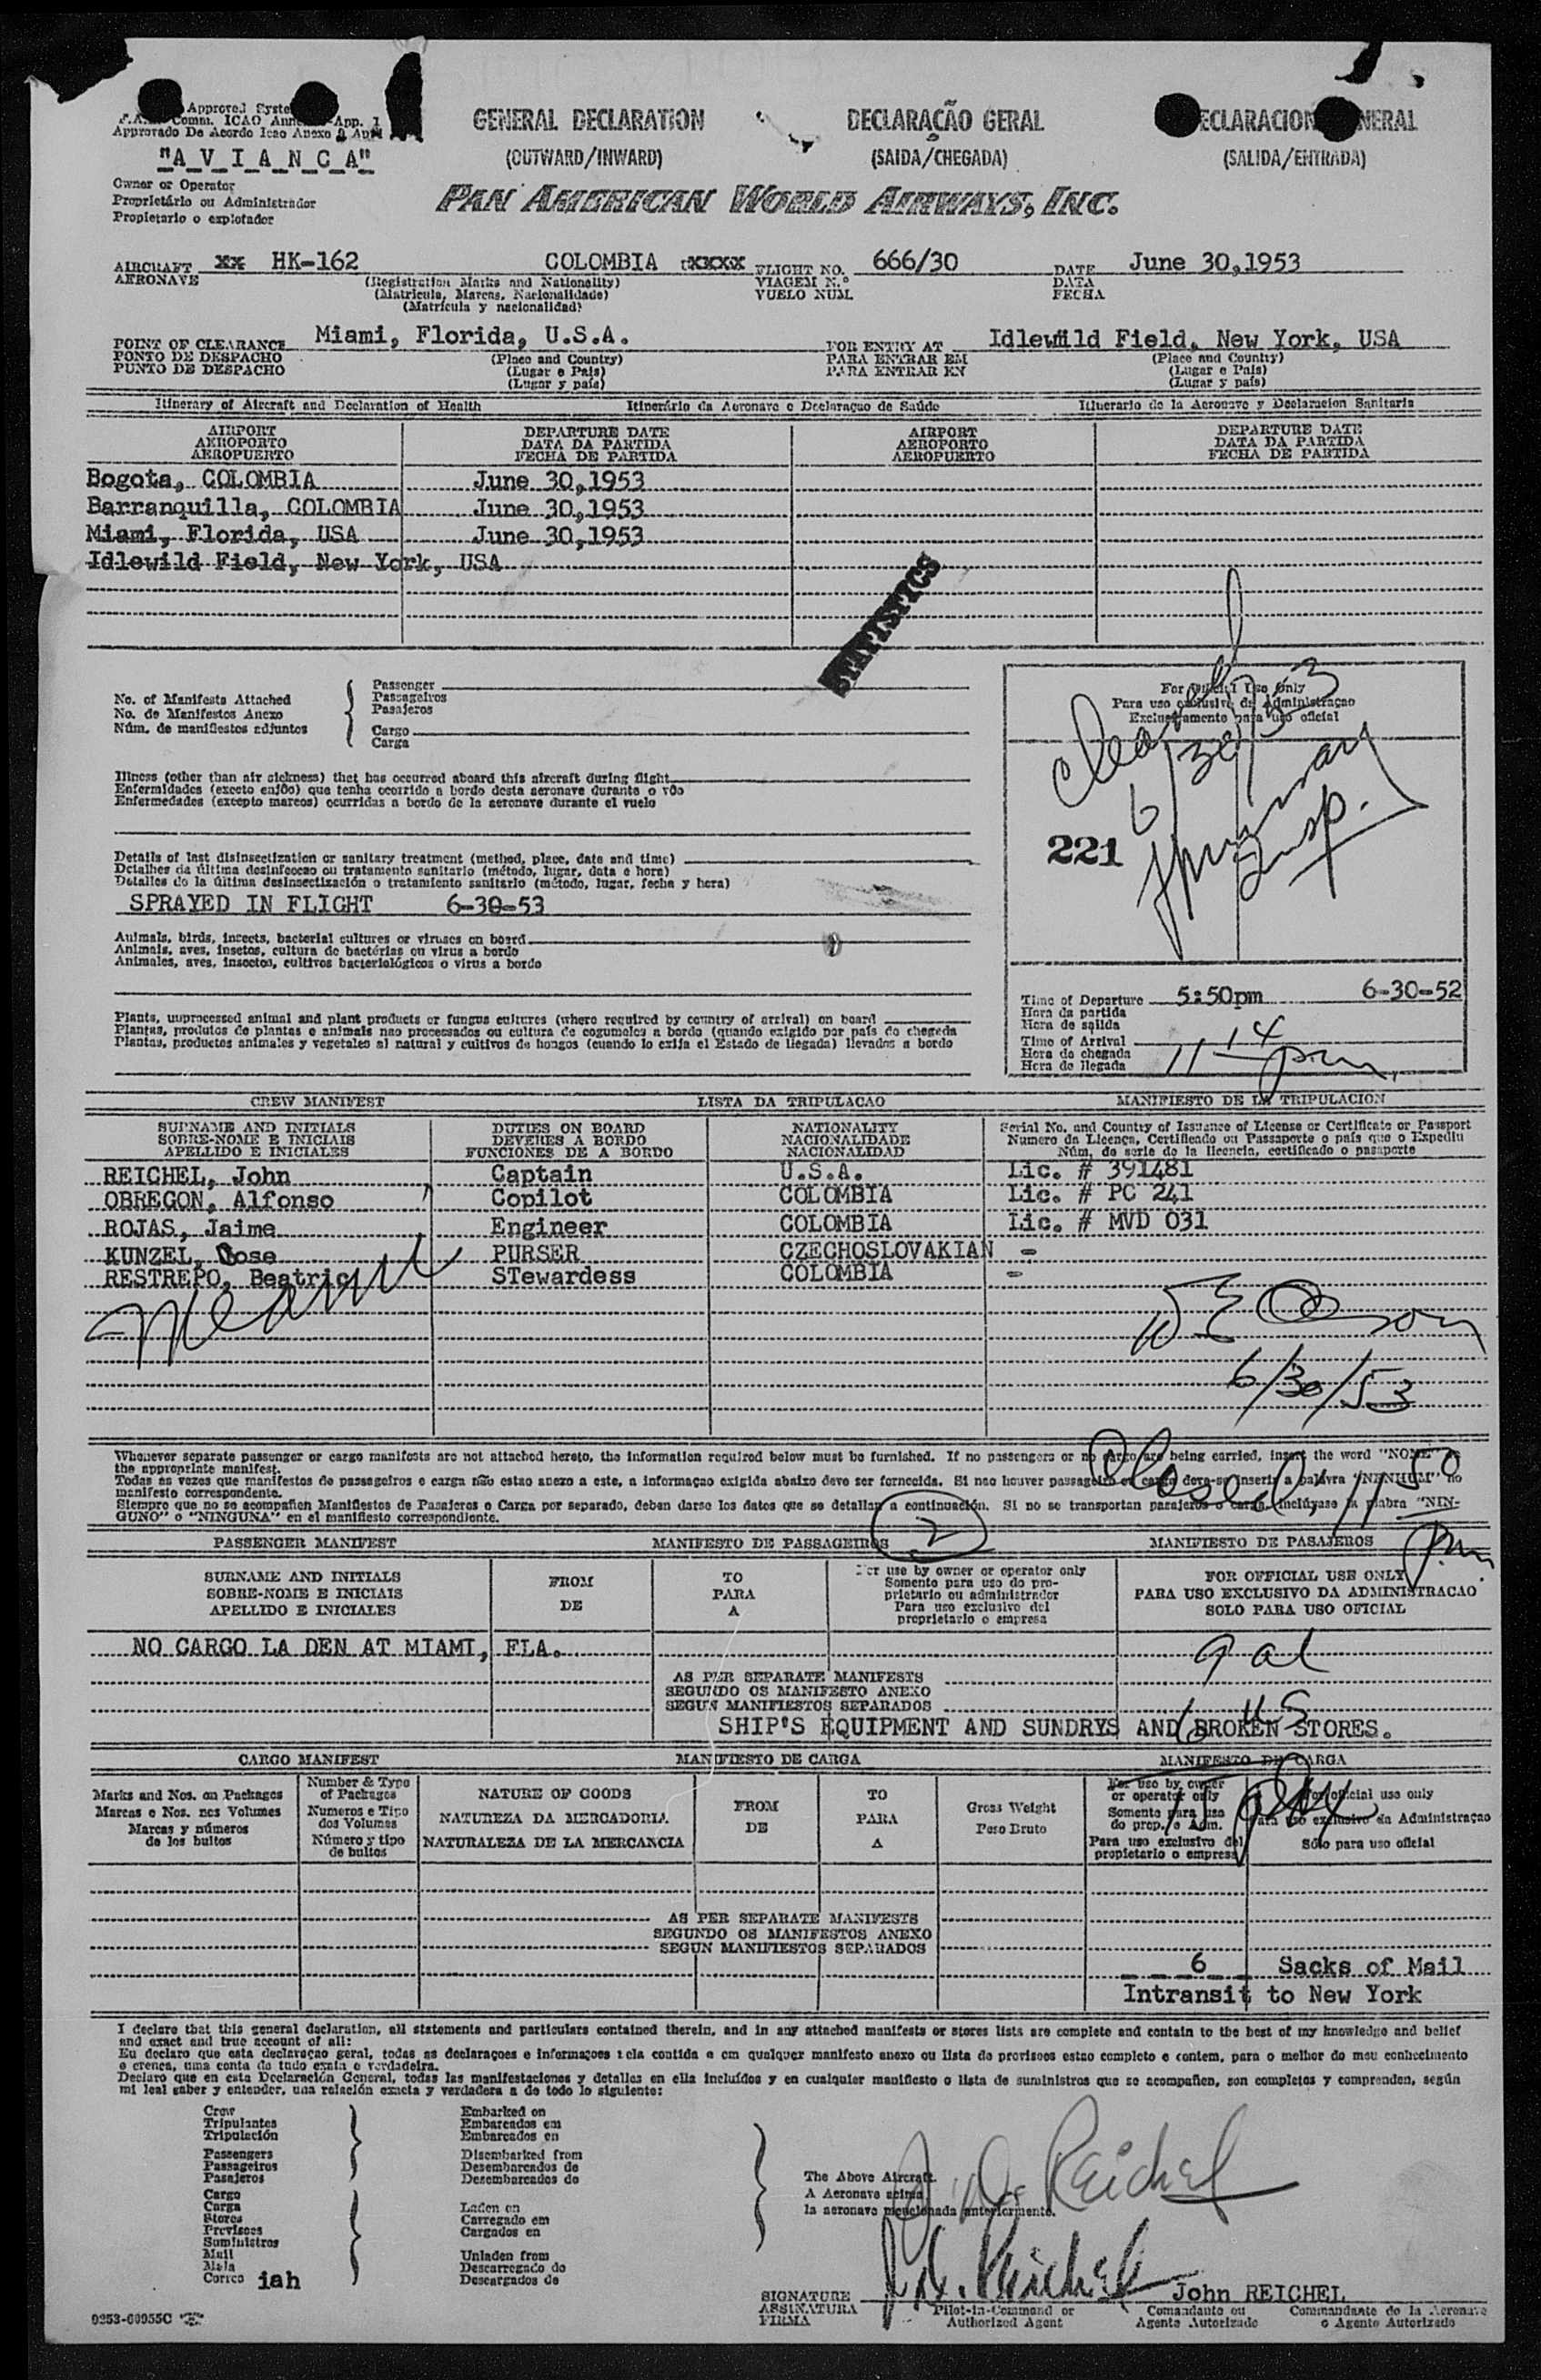 Approved
Comm. ICAO App. 1
Approvado De Acordo Icao Anexo
"A V I A N C A"
Owner or Operator
Proprietário ou Administrador
Propietario o explotador
GENERAL DECLARATION
(OUTWARD/INWARD)
DECLARAÇÃO GERAL
(SAIDA/CHEGADA)
(SALIDA/ENTRADA)
PAN AMERICAN WORLD AIRWAYS, INC.
AIRCRAFT xx HK-162 COLOMBIA xxxx FLIGHT NO. 666/30 DATE June 30,1953
AERONAVE (Registration Marks and Nationality) VIAGEM N.º DATA
(Matricula, Marcas, Nacionalidade) VUELO NUM. FECHA
(Matrícula y nacionalidad)
POINT OF CLEARANCE Miami, Florida, U.S.A. FOR ENTRY AT Idlewild Field, New York, USA
PONTO DE DESPACHO (Place and Country) PARA ENTRAR EM (Place and Country)
PUNTO DE DESPACHO (Lugar e Pais) PARA ENTRAR EN (Lugar e Pais)
(Lugar y país) (Lugar y país)
Itinerary of Aircraft and Declaration of Health Itinerário da Aeronave e Declaraçao de Saúde Itinerario de la Aeronave y Declaracion Sanitaria
AIRPORT DEPARTURE DATE AIRPORT DEPARTURE DATE
AEROPORTO DATA DA PARTIDA AEROPORTO DATA DA PARTIDA
AEROPUERTO FECHA DE PARTIDA AEROPUERTO FECHA DE PARTIDA
Bogota, COLOMBIA June 30,1953
Barranquilla, COLOMBIA June 30,1953
Miami, Florida, USA June 30,1953
Idlewild Field, New York, USA
STATISTICS
No. of Manifests Attached
No. de Manifestos Anexo
Núm. de manifiestos adjuntos
Passenger
Passageiros
Pasajeros
Cargo
Carga
For Official Use Only
Para uso exclusivo da Administraçao
Exclusivamente para uso oficial
Cleared
6/30/53
Insp.
221
Illness (other than air sickness) that has occurred aboard this aircraft during flight
Enfermidades (exceto enjôo) que tenha ocorrido a bordo desta aeronave durante o vôo
Enfermedades (excepto mareos) ocurridas a bordo de la aeronave durante el vuelo
Details of last disinsectization or sanitary treatment (method, place, date and time)
Detalhes da última desinfeccao ou tratamento sanitario (método, lugar, data e hora)
Detalles de la última desinsectización o tratamiento sanitario (método, lugar, fecha y hora)
SPRAYED IN FLIGHT 6-30-53
Animals, birds, insects, bacterial cultures or viruses on board
Animais, aves, insetos, cultura de bactérias ou virus a bordo
Animales, aves, insectos, cultivos bacteriológicos o virus a bordo
Plants, unprocessed animal and plant products or fungus cultures (where required by country of arrival) on board
Plantas, produtos de plantas e animais nao processados ou cultura de cogumelos a bordo (quando exigido por pais de chegada
Plantas, productos animales y vegetales al natural y cultivos de hongos (cuando lo exija el Estado de llegada) llevados a bordo
Time of Departure 5:50pm 6-30-52
Hora da partida
Hora de salida
Time of Arrival 11 14 pm
Hora da chegada
Hora de llegada
CREW MANIFEST LISTA DA TRIPULACAO MANIFIESTO DE LA TRIPULACION
SURNAME AND INITIALS DUTIES ON BOARD NATIONALITY Serial No. and Country of Issuance of License or Certificate or Passport
SOBRE-NOME E INICIAIS DEVERES A BORDO NACIONALIDADE Numero da Licença, Certificado ou Passaporte o pais que o Expediu
APELLIDO E INICIALES FUNCIONES DE A BORDO NACIONALIDAD Núm. de serie de la licencia, certificado o pasaporte
REICHEL, John Captain U.S.A. Lic. # 391481
OBREGON, Alfonso Copilot COLOMBIA Lic. # PC 241
ROJAS, Jaime Engineer COLOMBIA Lic. # MVD 031
KUNZEL, Jose PURSER CZECHOSLOVAKIAN -
RESTREPO, Beatriz STewardess COLOMBIA -
6/30/53
Whenever separate passenger or cargo manifests are not attached hereto, the information required below must be furnished. If no passengers or no cargo are being carried, insert the word "NONE"
the appropriate manifest.
Todas as vezes que manifestos de passageiros e carga não estao anexo a este, a informaçao exigida abaixo deve ser fornecida. Si nao houver passageiro ou carga deve-se inserir a palavra "NENHUM" no
manifesto correspondente.
Siempre que no se acompañen Manifiestos de Pasajeros o Carga por separado, deben darse los datos que se detallan a continuación. Si no se transportan pasajeros o carga, inclúyase la palabra "NIN-
GUNO" o "NINGUNA" en el manifiesto correspondiente.
Closed 11 50 pm
2
PASSENGER MANIFEST MANIFESTO DE PASSAGEIROS MANIFIESTO DE PASAJEROS
SURNAME AND INITIALS FROM TO For use by owner or operator only FOR OFFICIAL USE ONLY
SOBRE-NOME E INICIAIS DE PARA Somente para uso do pro- PARA USO EXCLUSIVO DA ADMINISTRACAO
APELLIDO E INICIALES A prietario ou administrador SOLO PARA USO OFICIAL
Para uso exclusivo del
proprietario o empresa
NO CARGO LA DEN AT MIAMI, FLA.
9 al
AS PER SEPARATE MANIFESTS
SEGUNDO OS MANIFESTO ANEXO
SEGUN MANIFIESTOS SEPARADOS
6 US
SHIP'S EQUIPMENT AND SUNDRYS AND BROKEN STORES.
CARGO MANIFEST MANIFIESTO DE CARGA MANIFESTO DE CARGA
Marks and Nos. on Packages Number & Type of Packages NATURE OF GOODS FROM TO Gross Weight For use by owner or operator only For official use only
Marcas e Nos. nos Volumes Numeros e Tipo dos Volumes NATUREZA DA MERCADORIA DE PARA Peso Bruto Somente para uso do prop. e Adm. Para uso exclusivo da Administraçao
Marcas y números de los bultos Número y tipo de bultos NATURALEZA DE LA MERCANCIA A Para uso exclusivo del propietario o empresa Sólo para uso oficial
AS PER SEPARATE MANIFESTS
SEGUNDO OS MANIFESTOS ANEXO
SEGUN MANIFIESTOS SEPARADOS
6 Sacks of Mail
Intransit to New York
I declare that this general declaration, all statements and particulars contained therein, and in any attached manifests or stores lists are complete and contain to the best of my knowledge and belief
and exact and true account of all:
Eu declaro que esta declaraçao geral, todas as declaraçoes e informaçoes nela contida e em qualquer manifesto anexo ou lista de provisoes estao completo e contem, para o melhor do meu conhecimento
e crenca, uma conta de tudo exata e verdadeira.
Declaro que en esta Declaración General, todas las manifestaciones y detalles en ella incluídos y en cualquier manifiesto o lista de suministros que se acompañen, son completos y comprenden, según
mi leal saber y entender, una relación exacta y verdadera a de todo lo siguiente:
Crew
Tripulantes
Tripulación
Passengers
Passageiros
Pasajeros
Cargo
Carga
Stores
Previsoes
Suministros
Mail
Mala
Correo iah
Embarked on
Embarcados em
Embarcados en
Disembarked from
Desembarcados de
Desembarcados de
Laden on
Carregado em
Cargados en
Unladen from
Descarregado do
Descargados de
The Above Aircraft.
A Aeronave acima
la aeronave mencionada anteriormente.
J. Reichel
SIGNATURE J. Reichel John REICHEL
ASSINATURA Pilot-in-Command or Comandante ou Commandante de la Aeronave
FIRMA Authorized Agent Agente Autorizado o Agente Autorizado